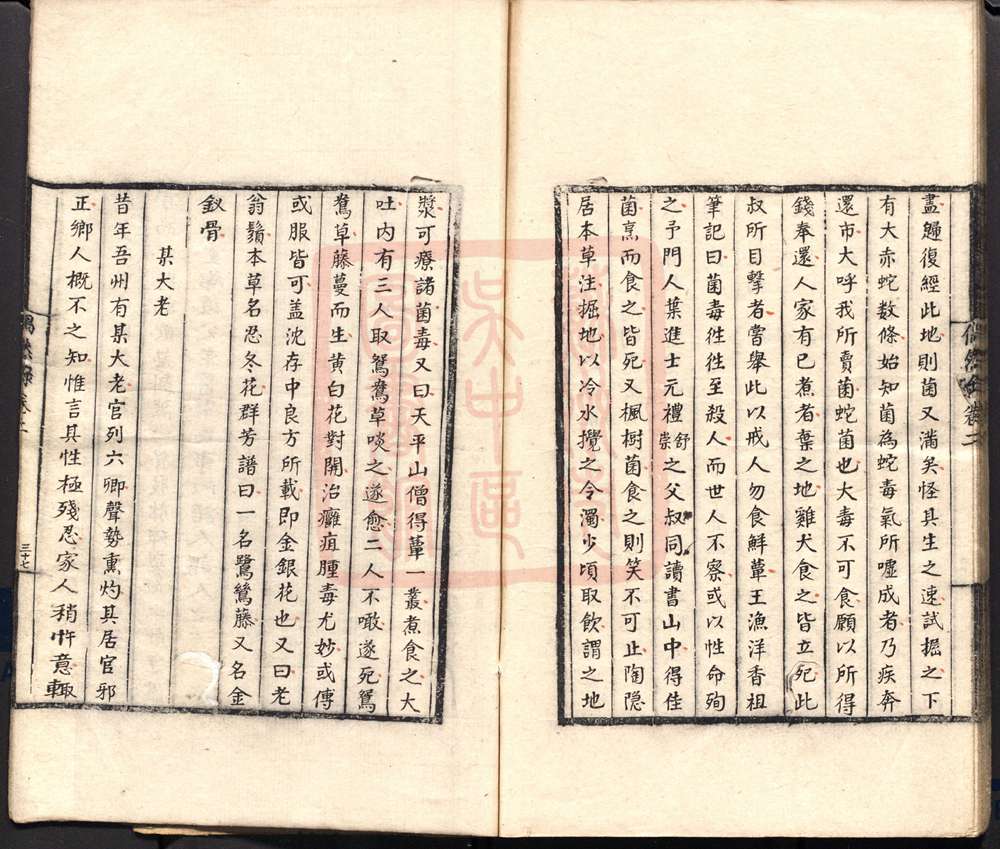 盡歸復經此地則菌又滿矣怪其生之速試掘之下
有大赤蛇數條始知菌為蛇毒氣所噓成者乃疾奔
還市大呼我所賣菌蛇菌也大毒不可食願以所得
錢奉還人家有已煮者棄之地雞犬食之皆立死此
叔所目擊者嘗舉此以戒人勿食鮮蕈王漁洋香祖
筆記曰菌毒徃徃至殺人而世人不察或以性命殉
之予門人葉進士元禮舒崇之父叔同讀書山中得佳
菌烹而食之皆死又楓樹菌食之則笑不可止陶隐
居本草注掘地以冷水攪之令濁少頃取飲謂之地
卷二
漿可療諸菌毒又曰天平山僧得蕈一叢煮食之大
吐内有三人取鴛鴦草啖之遂愈二人不噉遂死鴛
鴦草藤蔓而生黄白花對開治癰疽腫毒尤妙或傳
或服皆可盖沈存中良方所載即金銀花也又曰老
翁鬚本草名忍冬花群芳譜曰一名鷺鷥藤又名金
釵骨
某大老
昔年吾州有某大老官列六卿聲勢熏灼其居官邪
正鄉人概不之知惟言其性極殘忍家人稍忤意輒
三十七